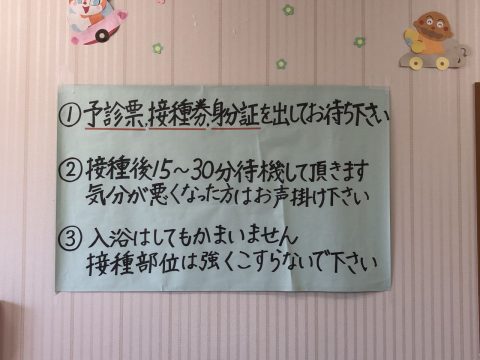 ①予診票、接種券、身分証を出してお待ち下さい
②接種後15～30分待機して頂きます
気分が悪くなった方はお声掛け下さい
③入浴はしてもかまいません
接種部位は強くこすらないで下さい